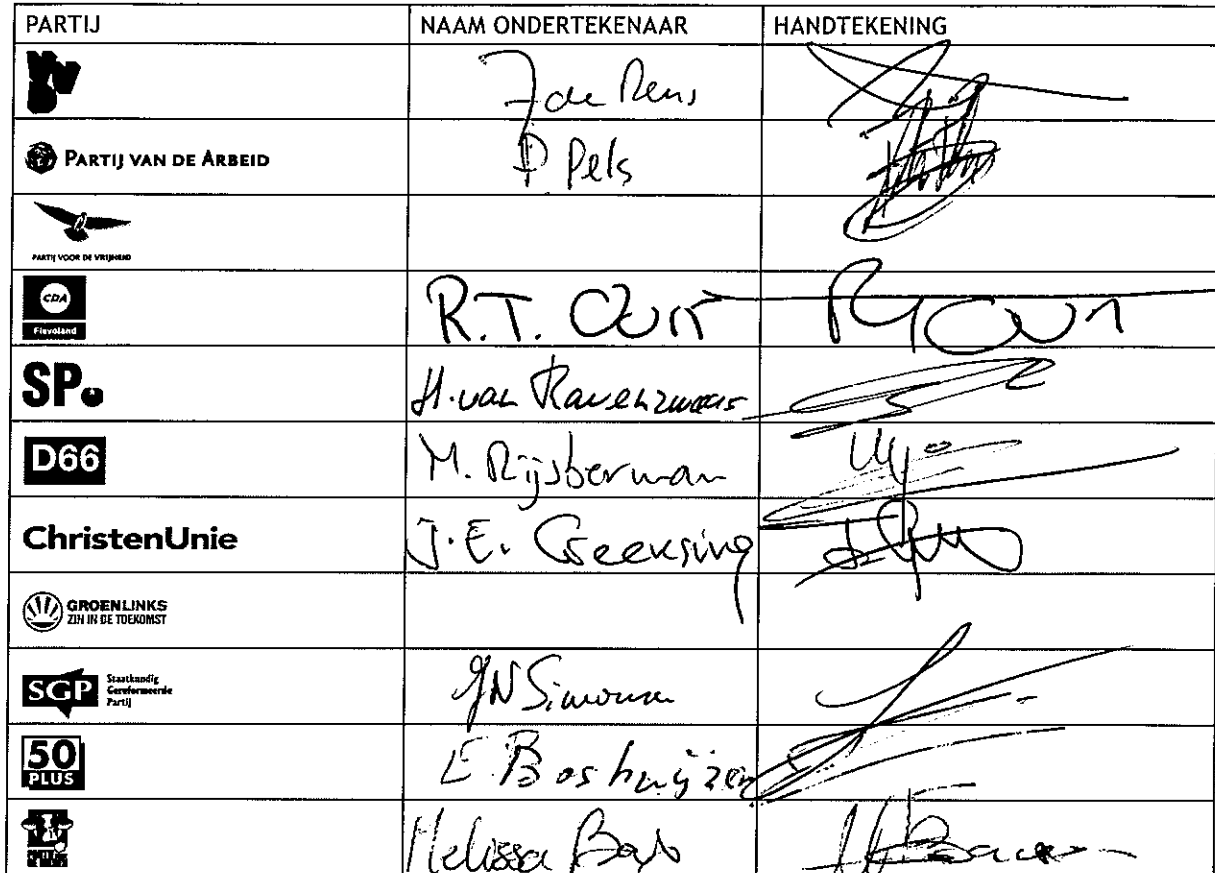 PARTIJ NAAM ONDERTEKENAAR HANDTEKENING
VVD J de Reus
PARTIJ VAN DE ARBEID P. Pels
PARTIJ VOOR DE VRIJHEID
CDA Flevoland R.T. Oost
SP. H. van Ravenzwaaij
D66 M. Rijsberman
ChristenUnie J.E. Geersing
GROENLINKS
ZIN IN DE TOEKOMST
SGP Staatkundig Gereformeerde Partij JN Simonse
50 PLUS E Boshuijzen
Melissa